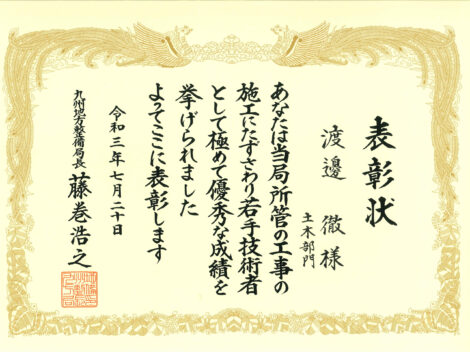 表彰状
渡邉 徹 様
土木部門
あなたは当局所管の工事の
施工にたずさわり若手技術者
として極めて優秀な成績を
挙げられました
よってここに表彰します
令和三年七月二十日
九州地方整備局長 藤巻浩之